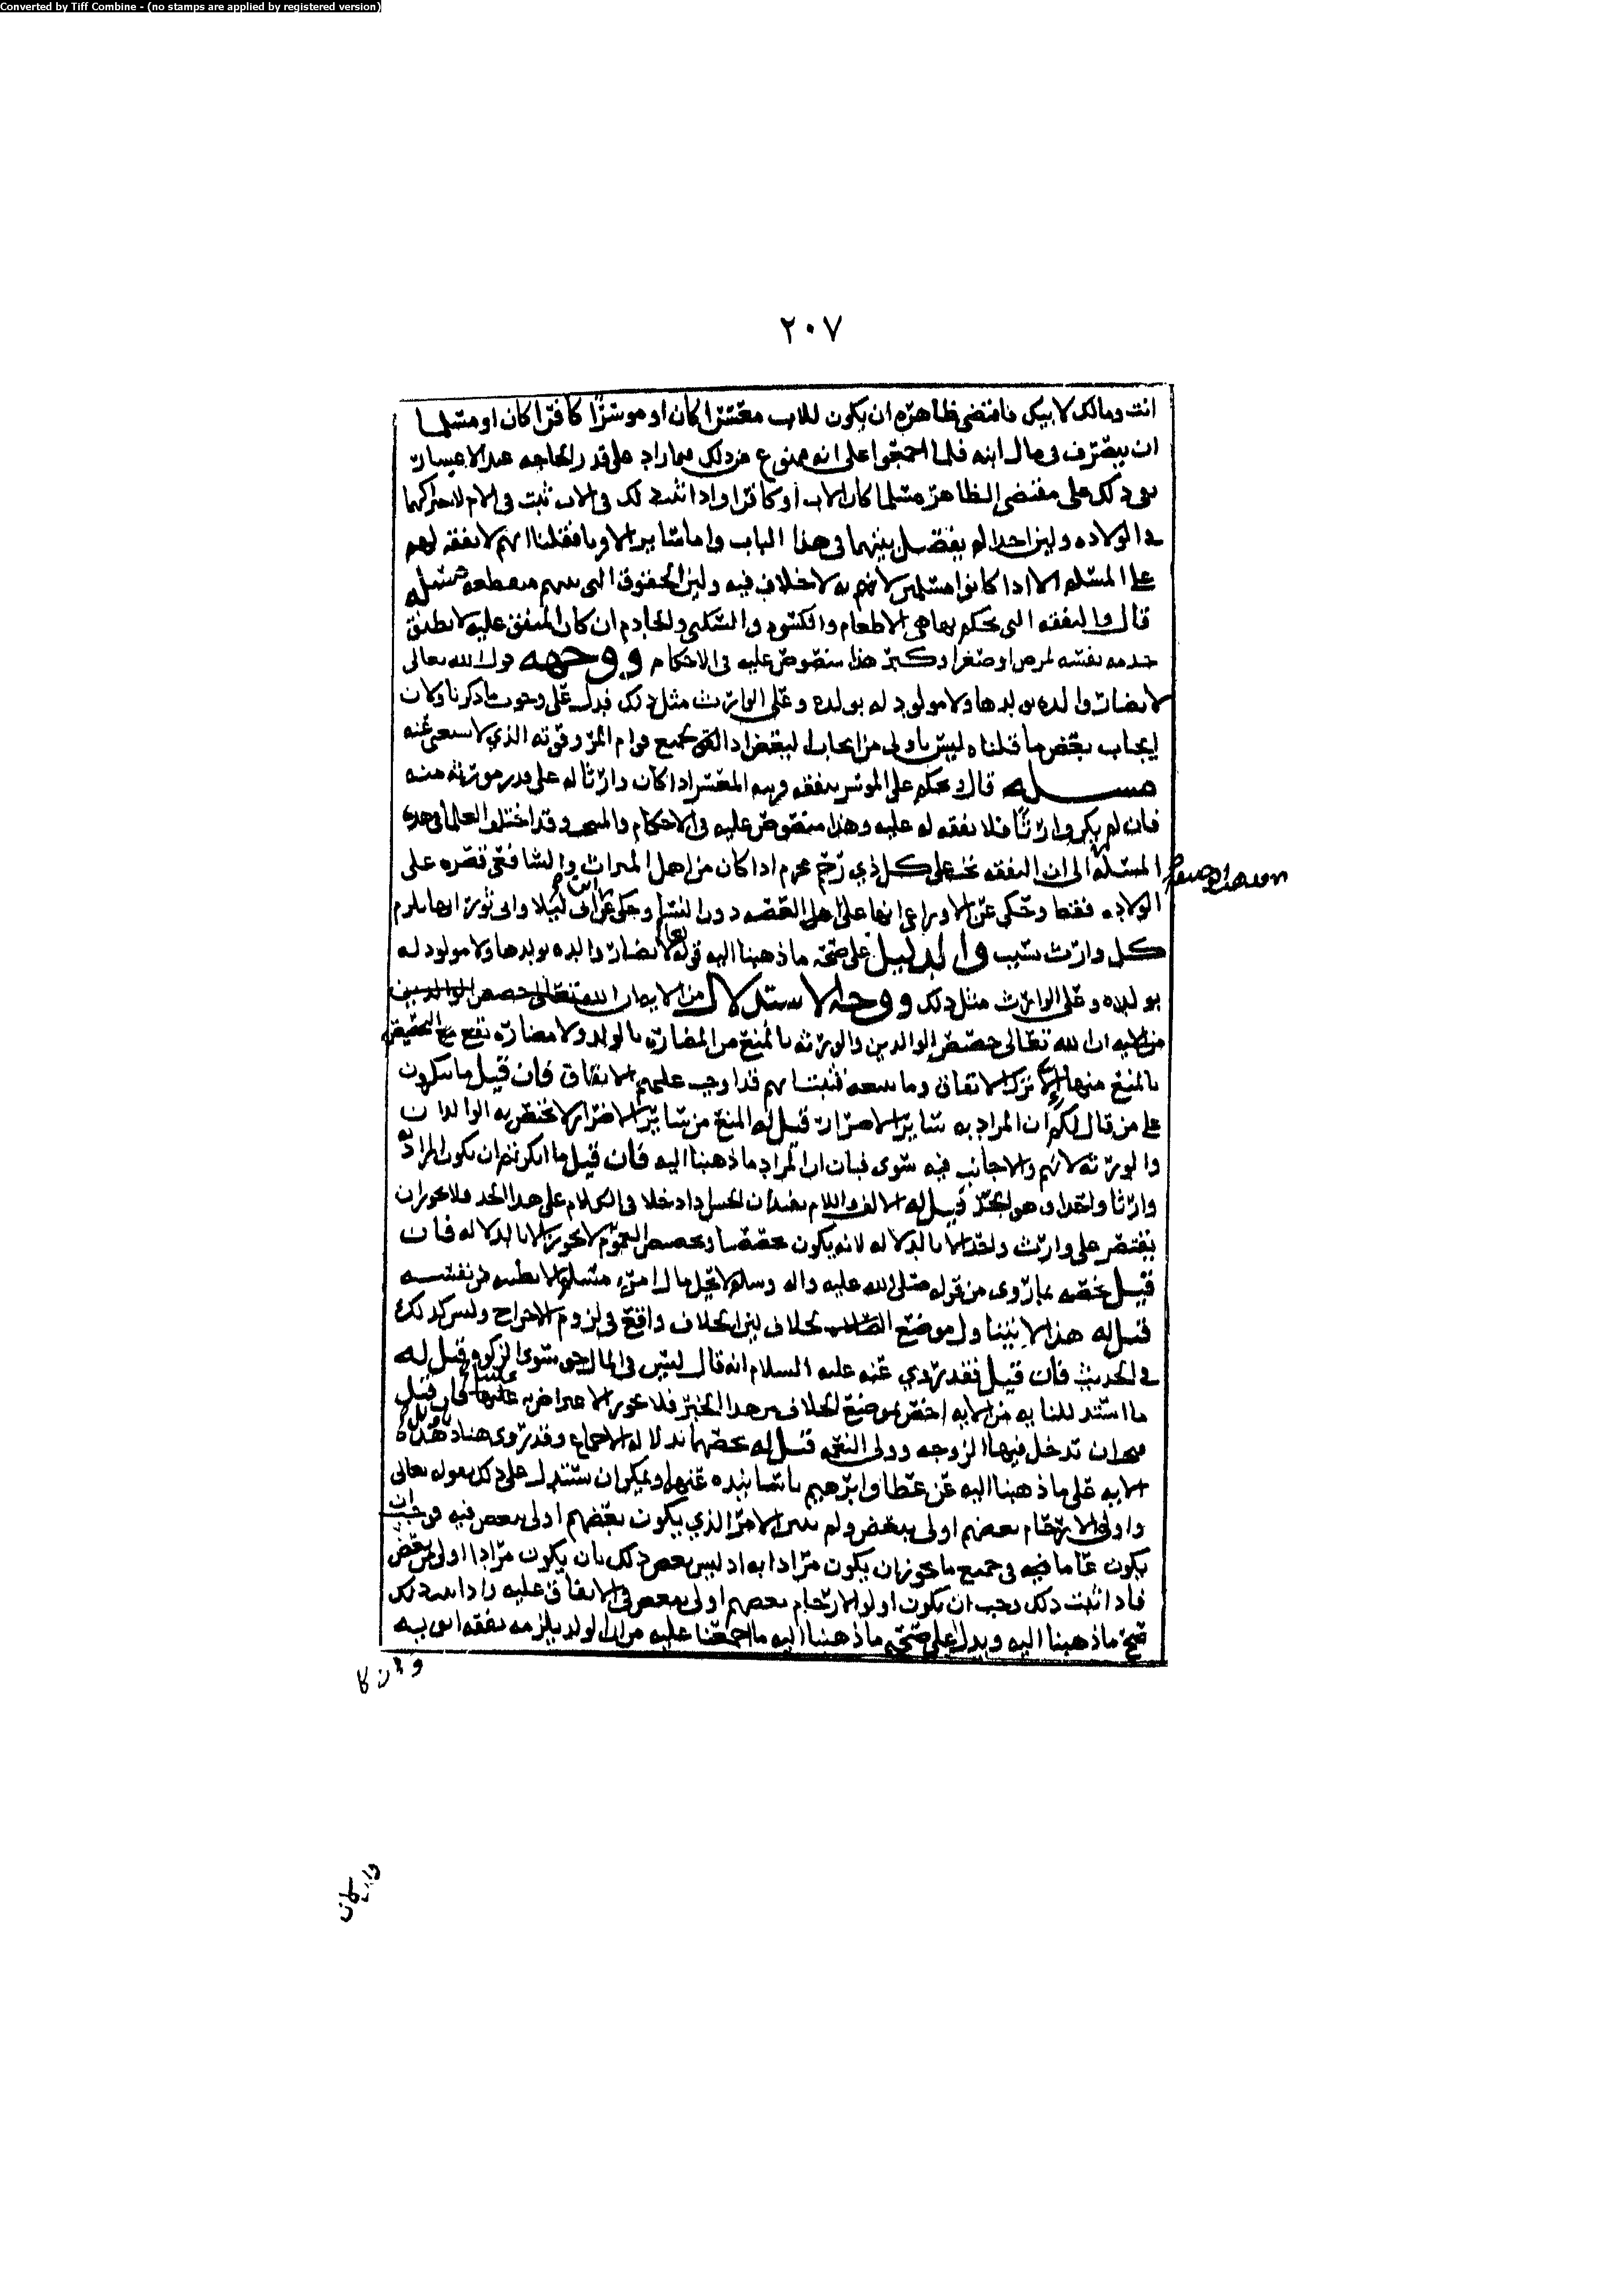 Converted by Tiff Combine - (no stamps are applied by registered version)
٢٠٧
انت ومالك لابيك فاقتضى ظاهره ان يكون للاب معسرا كان او موسرا كافرا كان او مسلما
ان يتصرف في مال ابنه فلما اجمعوا على انه ممنوع من ذلك فيما زاد على قدر الحاجه عند الاعسار
بقي ذلك على مقتضى الظاهر مسلما كان الاب او كافرا واذا ثبت ذلك في الاب ثبت في الام لاشتراكهما
في الولاده ولان احدا لم يفصل بينهما في هذا الباب واما سائر الاقربا فقلنا انهم لا نفقه لهم
على المسلم الا اذا كانوا مسلمين لانه لا خلاف فيه ولان الحقوق التي بينهم منقطعه مسئله
قال والنفقه التي يحكم بها هي الاطعام والكسوه والسكنى والخادم ان كان المنفق عليه لا يطيق
خدمه نفسه لمرض او صغر او كبر هذا منصوص عليه في الاحكام ووجهه قول الله تعالى
لا تضار والده بولدها ولا مولود له بولده وعلى الوارث مثل ذلك فدل على وجوب ما ذكرنا ولان
ايجاب بعض ما قلناه ليس باولى من ايجاب البعض اذ الكل قوام المرء وقوته الذي لا يستغنى عنه
مسئله قال ويحكم على الموسر بنفقه قريبه المعسر اذا كان وارثا له على قدر مورثه منه
فان لم يكن وارثا فلا نفقه له عليه وهذا منصوص عليه في الاحكام والمنتخب وقد اختلف العلما في هذه
المسئله الى ان النفقه تجب على كل ذي رحم محرم اذا كان من اهل الميراث والشافعي قصره على
الولاده فقط وحكي عن الاوزاعي انها على اهل العصبه دون النسا وحكي عن ابن ابي ليلا وابي ثور انها تلزم
كل وارث بسبب والدليل على صحه ما ذهبنا اليه قوله تعالى لا تضار والده بولدها ولا مولود له
بولده وعلى الوارث مثل ذلك ووجه الاستدلال من الايه ان الله تعالى خصص الوالدين
من الايه ان الله تعالى خصص الوالدين والورثه بالمنع من المضاره بالولد ولا مضاره تقع مع التخصيص
بالمنع منها الا ترك الانفاق وما يتبعه فثبت انهم قد اوجب عليهم الانفاق فان قيل ما تنكرون
على من قال لكم ان المراد به سائر الاضرار قيل له المنع من سائر الاضرار لا يختص به الوالدان
والورثه لانهم والاجانب فيه سوى فبان ان المراد ما ذهبنا اليه فان قيل ما انكرتم ان يكون المراد به
وارثا واحدا وهو الجد قيل له الالف واللام يفيدان الجنس اذا دخلا في الكلام على هذا الحد فلا يجوز ان
يقتصر على وارث واحد الا بالدلاله لانه يكون تخصيصا وتخصيص العموم لا يجوز الا بالدلاله فان
قيل نخصه بما روي من قوله صلى الله عليه واله وسلم لا يحل مال امرء مسلم الا بطيبه من نفسه
قيل له هذا لا يتناول موضع الخلاف لان الخلاف واقع في لزوم الاخراج وليس كذلك
في الحديث فان قيل فقد روي عنه عليه السلام انه قال ليس في المال حق سوى الزكوه قيل له
ما استدللنا به من الايه اخص بموضع الخلاف من هذا الخبر فلا يجوز الاعتراض به عليها فان قيل
فيجب ان تدخل فيها الزوجه وولي النعمه قيل له نخصهما بدلاله الاجماع وقد روى هناد هذه
الايه على ما ذهبنا اليه عن عطا وابرهيم باسانيده عنهما ويمكن ان يستدل على ذلك بقوله تعالى
واولو الارحام بعضهم اولى ببعض ولم يبين الامر الذي يكون بعضهم اولى ببعض فيه فوجب ان
يكون عاما فيه في جميع ما يجوز ان يكون مرادا به اذ ليس بعض ذلك بان يكون مرادا اولى من بعض
فاذا ثبت ذلك وجب ان يكون اولو الارحام بعضهم اولى ببعض في الانفاق عليه واذا ثبت ذلك
صح ما ذهبنا اليه ويدل على صحه ما ذهبنا اليه ما اجمعنا عليه من ان الولد يلزمه نفقه ابويه